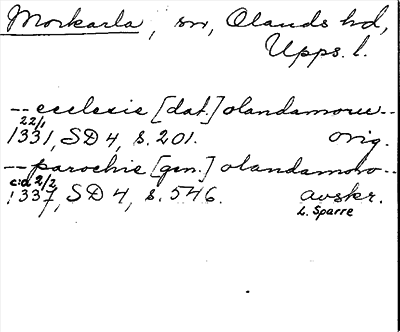 Morkarla, sn, Olands hd,
Upps. l.
-- ecclesie [dat.] olandamoree --
22/1
1331, SD 4, s. 201. orig.
-- parochie [gen.] olandamoro --
cid 2/2
1337, SD 4, s. 546. avskr.
L. Sparre